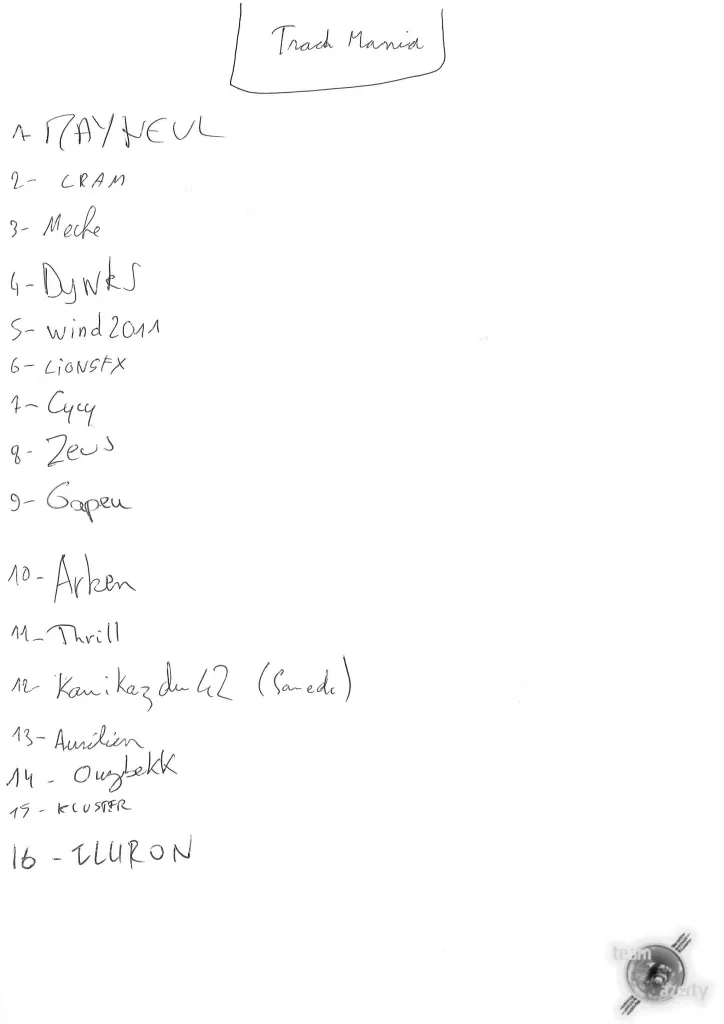 Track Mania
1- MAYNEUL
2- CRAM
3- Meche
4- DywkS
5- wind2011
6- LiONSFX
7- Cycy
8- Zeus
9- Gapeu
10- Arken
11- Thrill
12- Kamikazdu42 (Samedi)
13- Aurélien
14 - OuzbekK
15 - KLUSTER
16 - ILURON
team
azerty